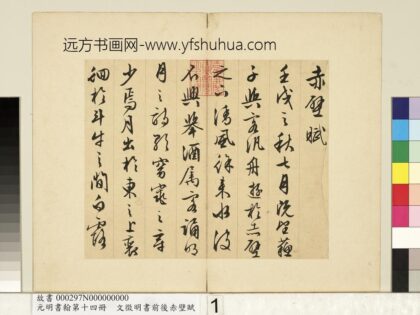 远方书画网-www.yfshuhua.com
赤壁賦
壬戌之秋七月既望蘇
子與客汎舟遊於赤壁
之下清風徐來水波
不興舉酒属客誦明
月之詩歌窈窕之章
少焉月出於東山之上裵
佪於斗牛之間白露
故書 000297N000000000
元明書翰第十四冊 文徵明書前後赤壁賦
1